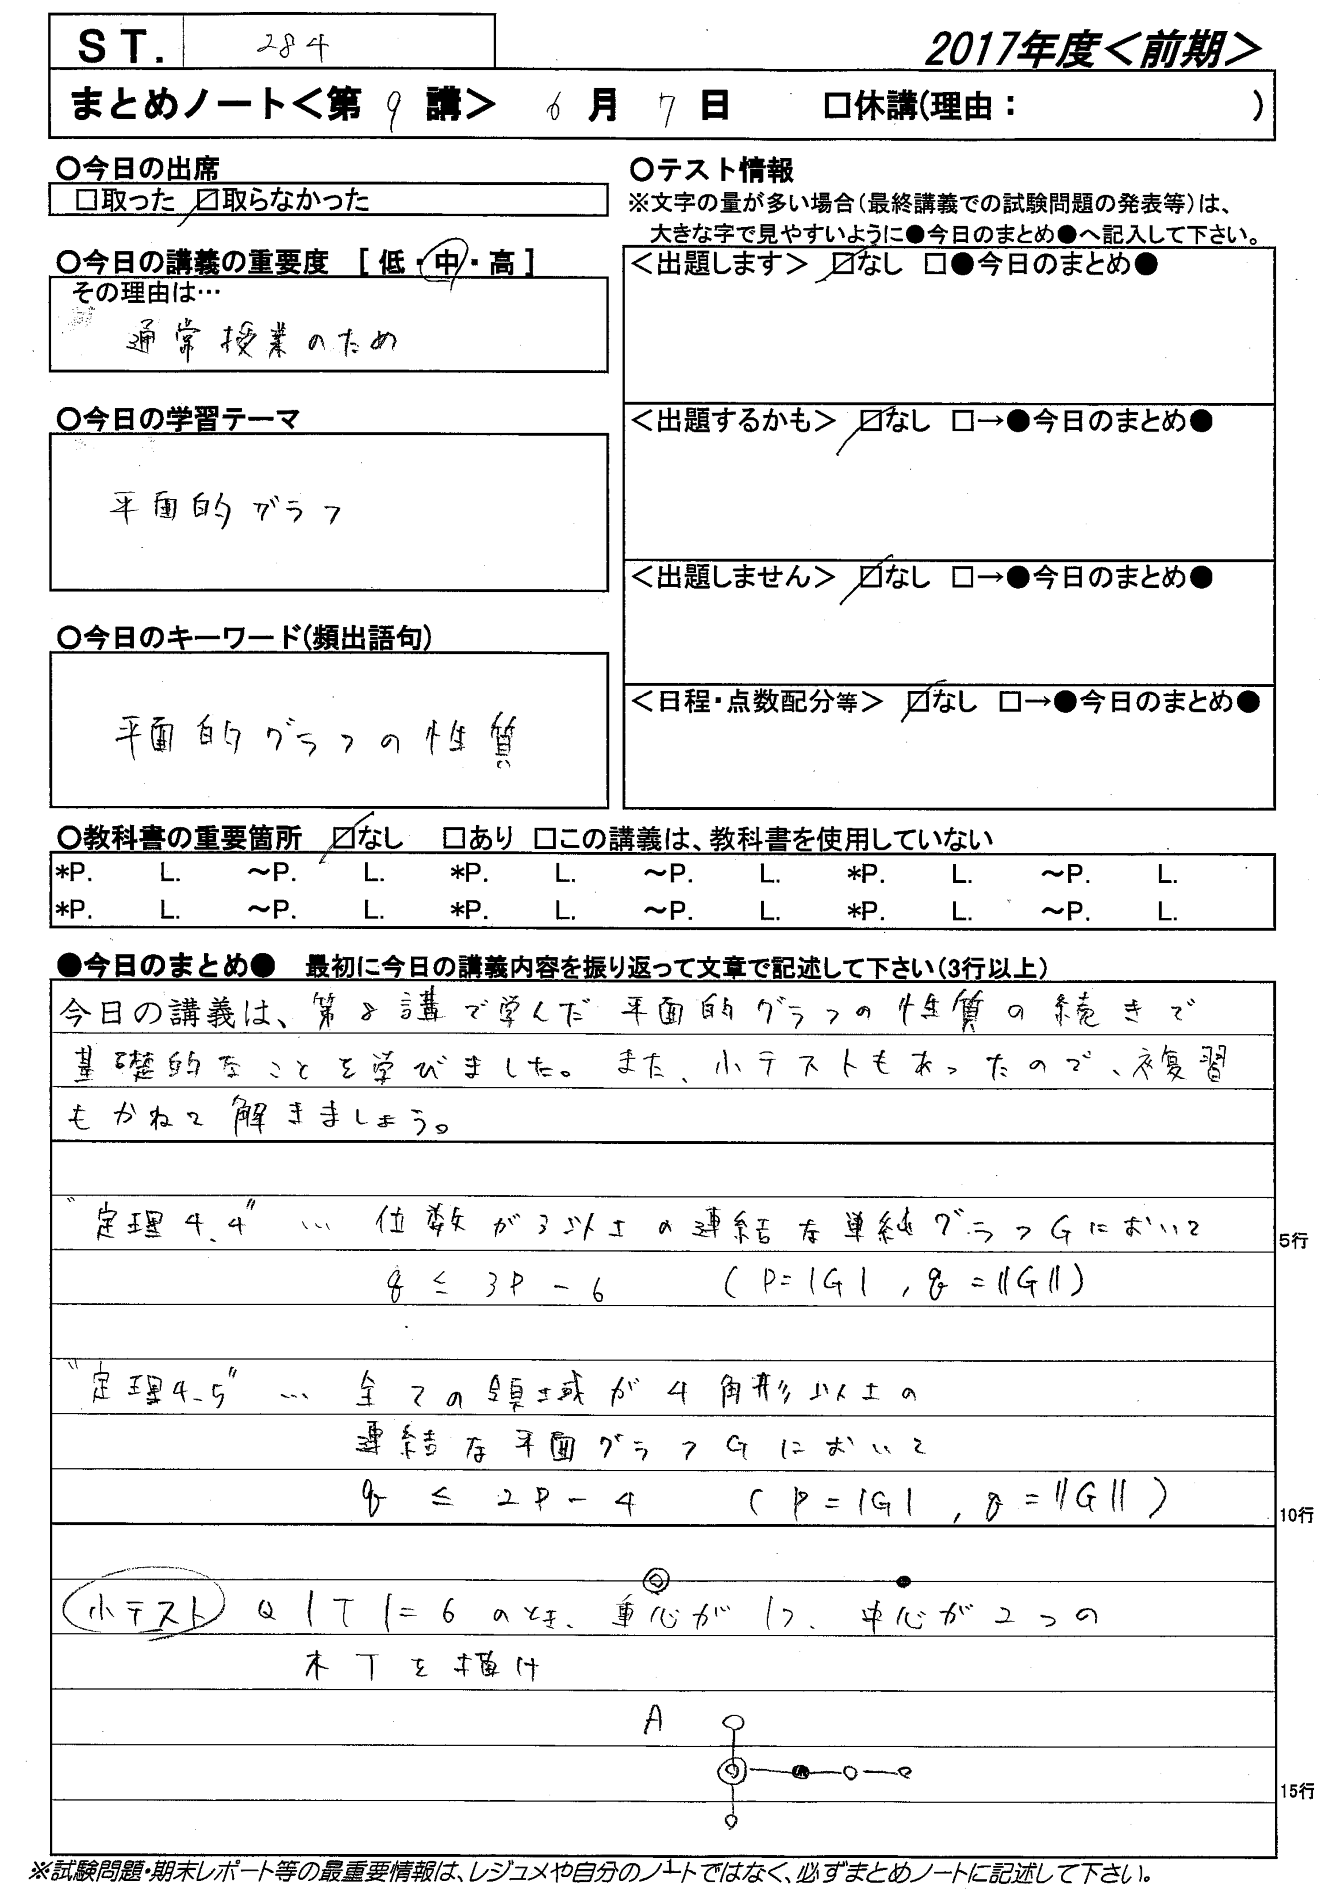 ST. 284
2017年度＜前期＞
まとめノート＜第 9 講＞ 6 月 7 日 □休講(理由： )
○今日の出席
□取った ☑取らなかった
○今日の講義の重要度 [ 低・中・高 ]
その理由は…
通常授業のため
○今日の学習テーマ
平面的グラフ
○今日のキーワード(頻出語句)
平面的グラフの性質
○テスト情報
※文字の量が多い場合(最終講義での試験問題の発表等)は、
大きな字で見やすいように●今日のまとめ●へ記入して下さい。
＜出題します＞ ☑なし □●今日のまとめ●
＜出題するかも＞ ☑なし □→●今日のまとめ●
＜出題しません＞ ☑なし □→●今日のまとめ●
＜日程・点数配分等＞ ☑なし □→●今日のまとめ●
○教科書の重要箇所 ☑なし □あり □この講義は、教科書を使用していない
*P. L. ～P. L. *P. L. ～P. L. *P. L. ～P. L.
*P. L. ～P. L. *P. L. ～P. L. *P. L. ～P. L.
●今日のまとめ● 最初に今日の講義内容を振り返って文章で記述して下さい(3行以上)
今日の講義は、第8講で学んだ平面的グラフの性質の続きで
基礎的なことを学びました。また、小テストもあったので、復習
もかねて解きましょう。
"定理4.4" … 位数が3以上の連結な単純グラフGにおいて
5行
q ≦ 3P - 6 (P=|G|, q=||G||)
"定理4.5" … 全ての領域が4角形以上の
連結な平面グラフGにおいて
q ≦ 2P - 4 (P=|G|, q=||G||)
10行
小テスト Q |T|=6のとき、重心が1つ、中心が2つの
木Tを描け
A
15行
※試験問題・期末レポート等の最重要情報は、レジュメや自分のノートではなく、必ずまとめノートに記述して下さい。